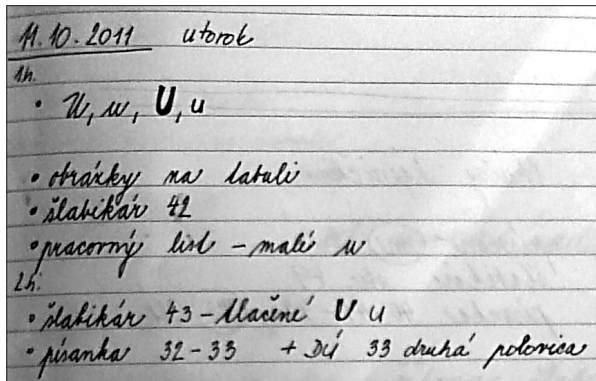 11.10.2011 utorok
1.h.
• U, u, U, u
• obrázky na tabuli
• šlabikár 42
• pracovný list - malé u
2.h.
• šlabikár 43 - tlačené U u
• písanka 32-33 + DÚ 33 druhá polovica